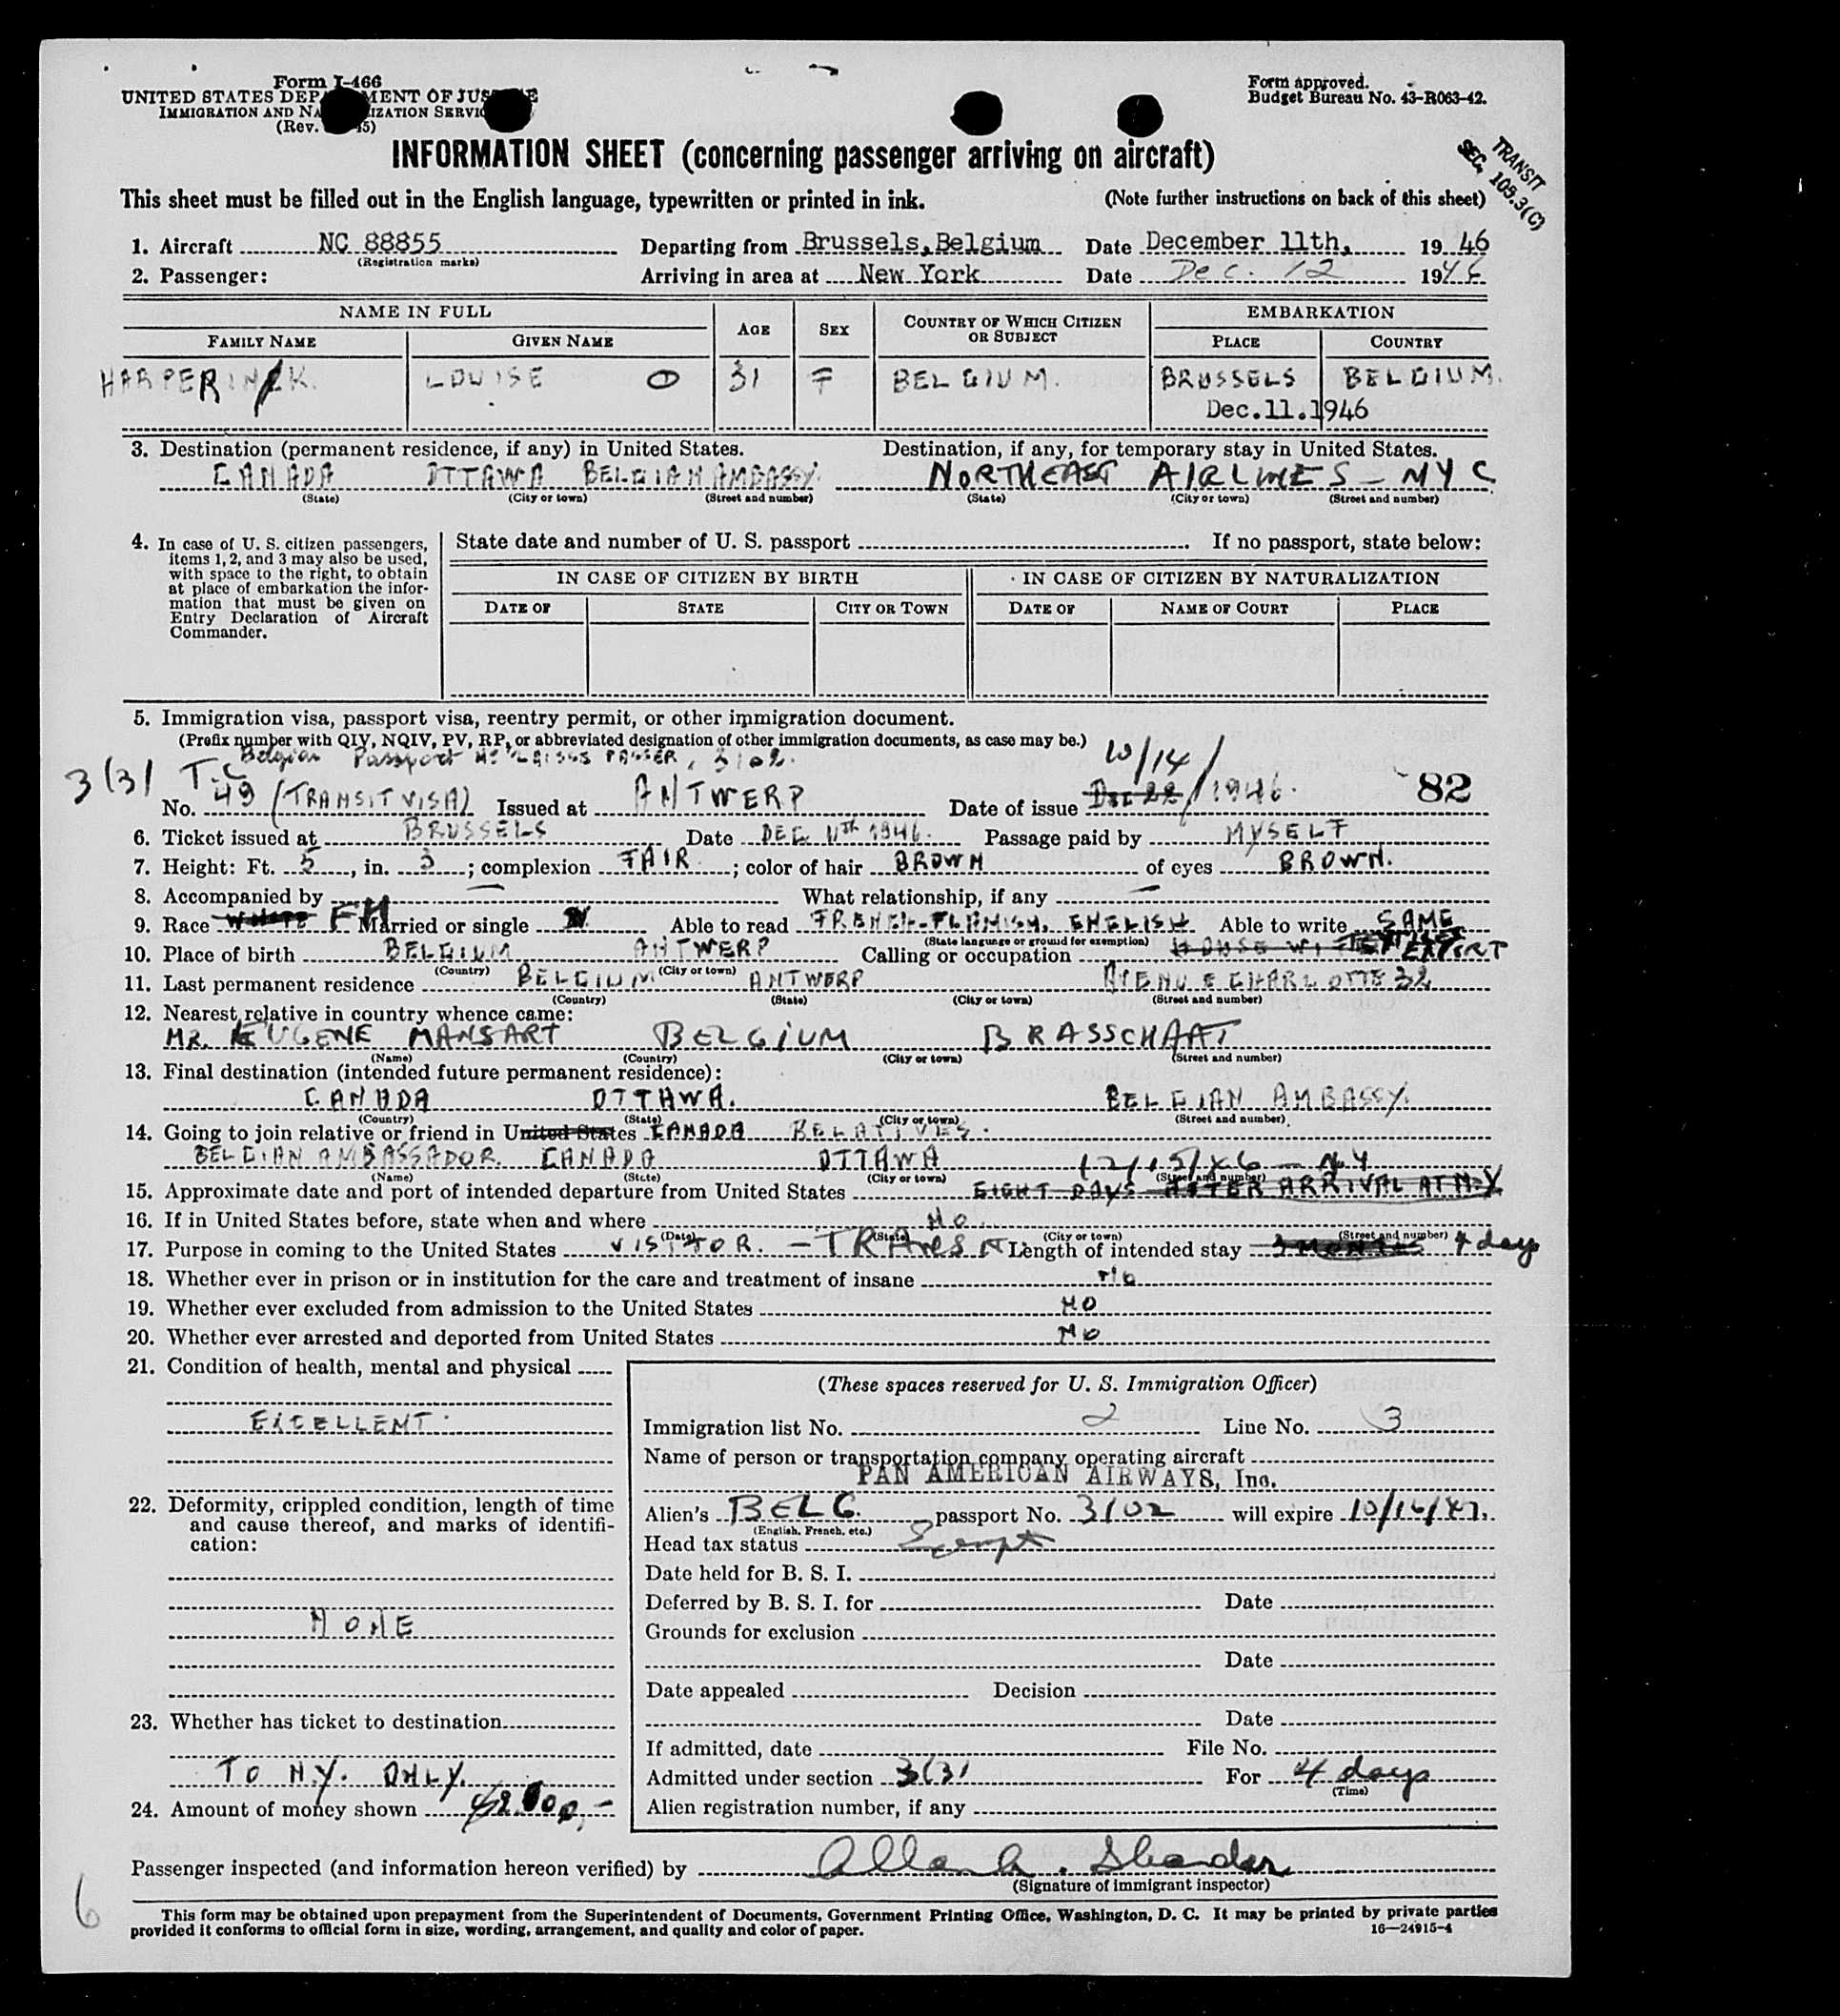 Form I-466
UNITED STATES DEPARTMENT OF JUSTICE
IMMIGRATION AND NATURALIZATION SERVICE
(Rev. 45)
Form approved.
Budget Bureau No. 43-R063-42.
TRANSIT
SEC. 105.3(C)
INFORMATION SHEET (concerning passenger arriving on aircraft)
This sheet must be filled out in the English language, typewritten or printed in ink. (Note further instructions on back of this sheet)
1. Aircraft NC 88855 Departing from Brussels, Belgium Date December 11th, 1946
(Registration marks)
2. Passenger: Arriving in area at New York Date Dec. 12 1946
NAME IN FULL AGE SEX COUNTRY OF WHICH CITIZEN OR SUBJECT EMBARKATION
FAMILY NAME GIVEN NAME PLACE COUNTRY
HARPERINCK. LOUISE 31 F BELGIUM. BRUSSELS BELGIUM.
Dec.11.1946
3. Destination (permanent residence, if any) in United States. Destination, if any, for temporary stay in United States.
CANADA OTTAWA BELGIAN AMBASSY. NORTHEAST AIRLINES - NYC
(State) (City or town) (Street and number) (State) (City or town) (Street and number)
4. In case of U. S. citizen passengers, items 1, 2, and 3 may also be used, with space to the right, to obtain at place of embarkation the information that must be given on Entry Declaration of Aircraft Commander.
State date and number of U. S. passport . If no passport, state below:
IN CASE OF CITIZEN BY BIRTH IN CASE OF CITIZEN BY NATURALIZATION
DATE OF STATE CITY OR TOWN DATE OF NAME OF COURT PLACE
5. Immigration visa, passport visa, reentry permit, or other immigration document.
(Prefix number with QIV, NQIV, PV, RP, or abbreviated designation of other immigration documents, as case may be.)
Belgian Passport 3102.
3(3) T.C 10/14/
No. 49 (TRANSIT VISA) Issued at ANTWERP Date of issue Dec 22 1946. 82
6. Ticket issued at BRUSSELS Date DEC. 11th 1946. Passage paid by MYSELF
7. Height: Ft. 5, in. 3; complexion FAIR; color of hair BROWN of eyes BROWN.
8. Accompanied by — What relationship, if any —
9. Race WHITE FH Married or single Able to read FRENCH-FLEMISH, ENGLISH Able to write SAME
(State language or ground for exemption)
10. Place of birth BELGIUM ANTWERP Calling or occupation HOUSE WIFE EXPERT
(Country) (City or town)
11. Last permanent residence BELGIUM ANTWERP AVENUE CHARLOTTE 32
(Country) (State) (City or town) (Street and number)
12. Nearest relative in country whence came:
MR. EUGENE MANSART BELGIUM BRASSCHAAT
(Name) (Country) (City or town) (Street and number)
13. Final destination (intended future permanent residence):
CANADA OTTAWA. BELGIAN AMBASSY.
(Country) (State) (City or town) (Street and number)
14. Going to join relative or friend in United States CANADA RELATIVES.
BELGIAN AMBASSADOR. CANADA OTTAWA 12/15/46 - N.Y
(Name) (State) (City or town) (Street and number)
15. Approximate date and port of intended departure from United States EIGHT DAYS AFTER ARRIVAL AT N-Y
16. If in United States before, state when and where NO.
(Date) (State) (City or town) (Street and number)
17. Purpose in coming to the United States VISITOR. - TRANSIT Length of intended stay 3 MONTHS 4 days
18. Whether ever in prison or in institution for the care and treatment of insane NO
19. Whether ever excluded from admission to the United States NO
20. Whether ever arrested and deported from United States NO
21. Condition of health, mental and physical
EXCELLENT.
22. Deformity, crippled condition, length of time and cause thereof, and marks of identification:
NONE
23. Whether has ticket to destination
TO N.Y. ONLY.
24. Amount of money shown
(These spaces reserved for U. S. Immigration Officer)
Immigration list No. 2 Line No. 3
Name of person or transportation company operating aircraft
PAN AMERICAN AIRWAYS, Inc.
Alien's BELG. passport No. 3102 will expire 10/14/47.
(English, French, etc.)
Head tax status Exempt
Date held for B. S. I.
Deferred by B. S. I. for Date
Grounds for exclusion
Date
Date appealed Decision
Date
If admitted, date File No.
Admitted under section 3(3) For 4 days
(Time)
Alien registration number, if any
Passenger inspected (and information hereon verified) by
(Signature of immigrant inspector)
6
This form may be obtained upon prepayment from the Superintendent of Documents, Government Printing Office, Washington, D. C. It may be printed by private parties
provided it conforms to official form in size, wording, arrangement, and quality and color of paper. 16—24915-4